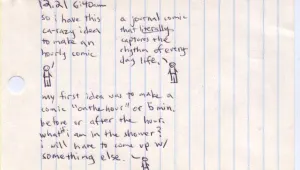 12.21 6:40am
so i have this
ca-razy idea
to make an
hourly comic
a journal comic
that literally
captures the
rhythm of every-
day life.
my first idea was to make a
comic "on the hour" or 5 min.
before or after the hour.
what if i am in the shower?
i will have to come up w/
something else.